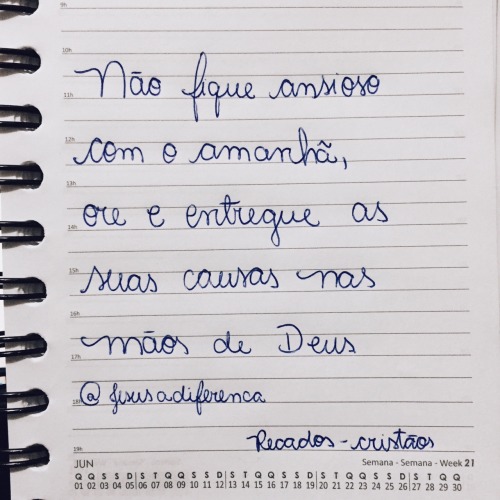 9h
10h
Não fique ansioso
11h
12h
com o amanhã,
13h
ore e entregue as
14h
15h
suas causas nas
16h
mãos de Deus
17h
@Jesusadiferenca
18h
Recados-cristãos
19h
JUN Semana - Semana - Week 21
Q Q S S D S T Q Q S S D S T Q Q S S D S T Q Q S S D S T Q Q
01 02 03 04 05 06 07 08 09 10 11 12 13 14 15 16 17 18 19 20 21 22 23 24 25 26 27 28 29 30